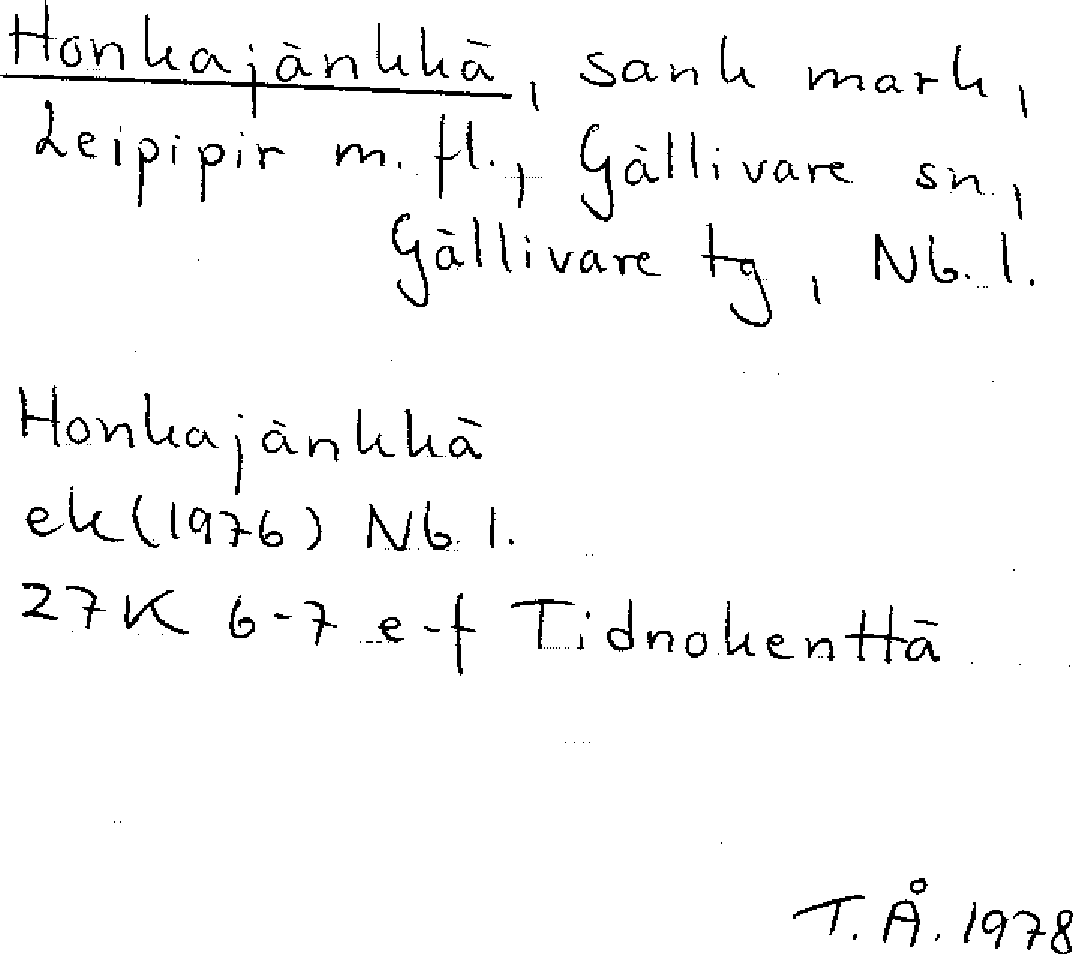 Honkajänkkä, sank mark,
Leipipir m. fl., Gällivare sn,
Gällivare tg, Nb. l.
Honkajänkkä
ek (1976) Nb. l.
27K 6-7 e-f Tidnokenttä
T. Å. 1978